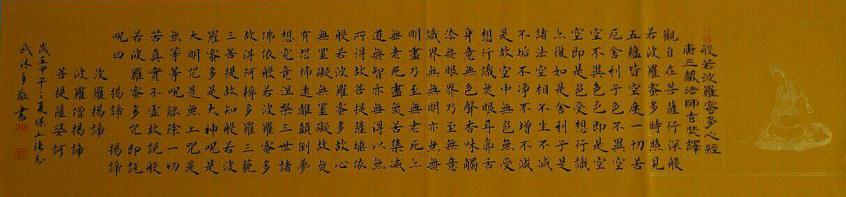 般若波羅蜜多心經
唐三藏法師玄奘譯
觀自在菩薩行深般
若波羅蜜多時照見
五蘊皆空度一切苦
厄舍利子色不異空
空不異色色即是空
空即是色受想行識
亦復如是舍利子是
諸法空相不生不滅
不垢不淨不增不減
是故空中無色無受
想行識無眼耳鼻舌
身意無色聲香味觸
法無眼界乃至無意
識界無無明亦無無
明盡乃至無老死亦
無老死盡無苦集滅
道無智亦無得以無
所得故菩提薩埵依
般若波羅蜜多故心
無罣礙無罣礙故無
有恐怖遠離顛倒夢
想究竟涅槃三世諸
佛依般若波羅蜜多
故得阿耨多羅三藐
三菩提故知般若波
羅蜜多是大神呪是
大明呪是無上呪是
無等等呪能除一切
苦真實不虛故說般
若波羅蜜多呪即說
呪曰 揭諦 揭諦
波羅揭諦
波羅僧揭諦
菩提薩婆訶
甲午之夏保山
敬書